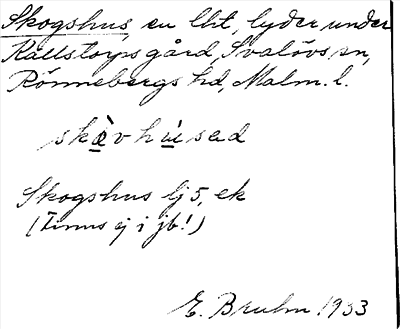 Skogshus en lht, lyder under
Källstorps gård, Svalövs sn,
Rönnebergs hd, Malm. l.
skæ̀vhu̇̀sed
Skogshus lj 5, ek
(Finns ej i jb!)
E. Bruhn 1933